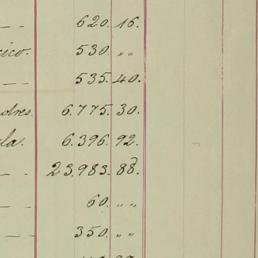 — — 620. 16.
530. „„
— 535. 40.
6.775. 30.
6.396. 92.
— 23.983. 88.
— 60. „„
— — 350. „„